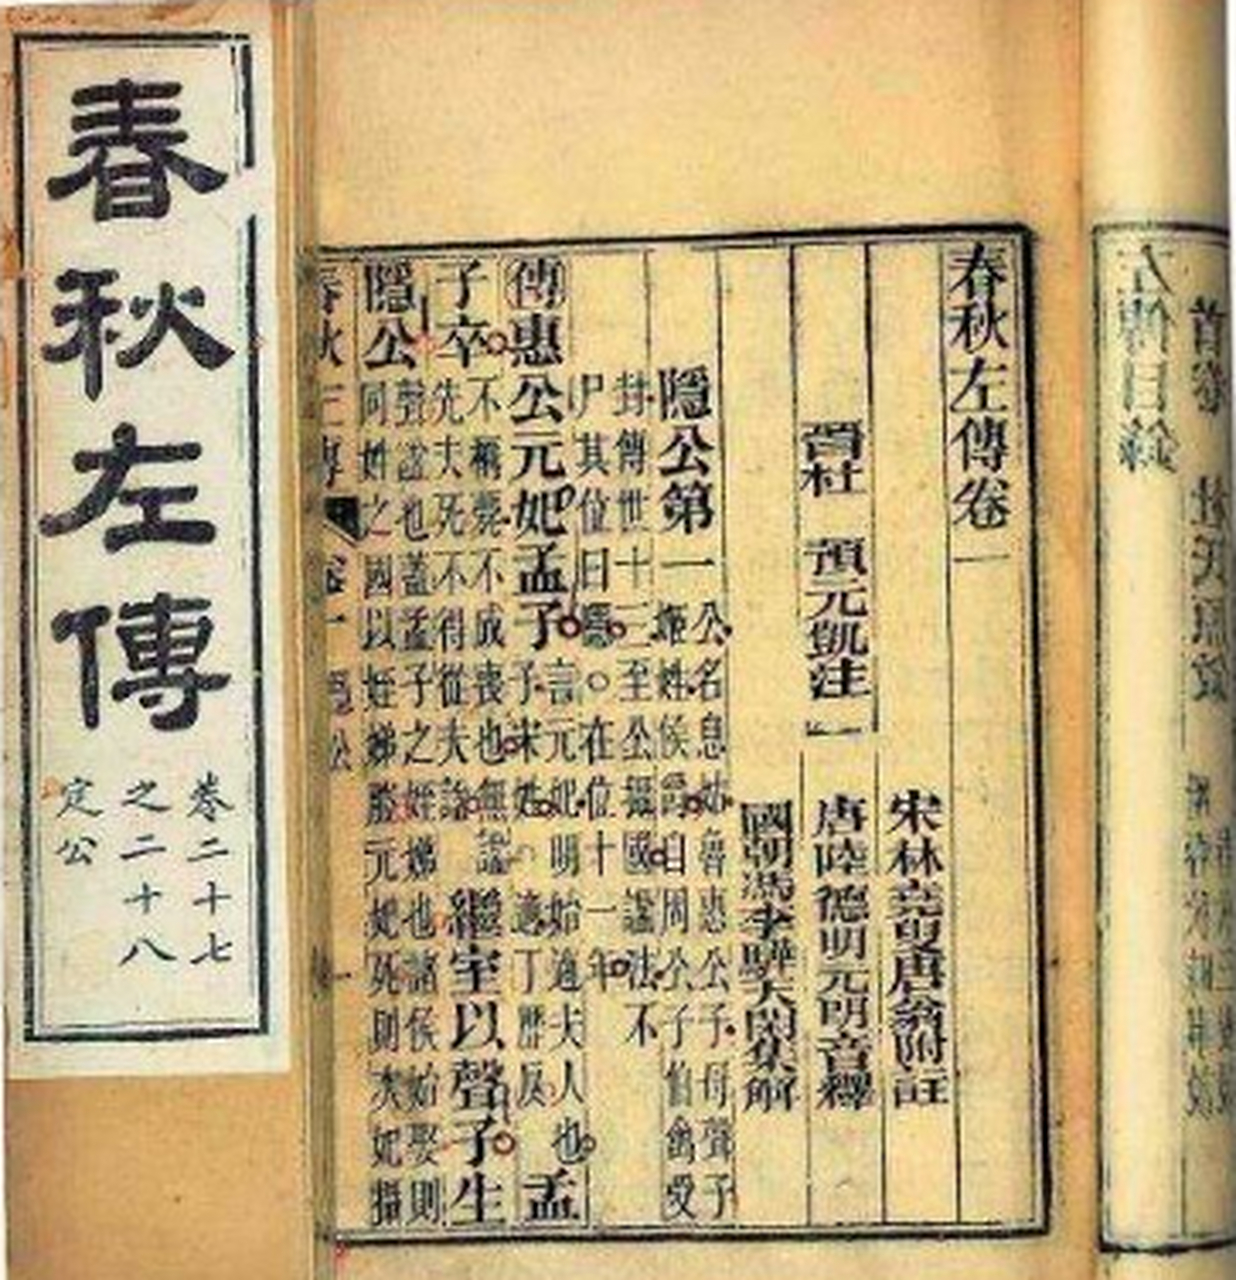 左傳目錄
春秋左傳卷一
宋林堯叟唐翁附註
晉杜預元凱注 唐陸德明元明音釋
國朝馮李驊天閑集解
隱公第一 公名息姑魯惠公子母聲子 姬姓侯爵自周公子伯禽受
封傳世十三至公攝國諡法不 尸其位曰隱○在位十一年
傳惠公元妃孟子 言元妃明始適夫人也 子宋姓○適丁歷反 孟
子卒 不稱薨不成喪也無諡 先夫死不得從夫諡 繼室以聲子生
隱公 聲諡也蓋孟子之姪娣也諸侯始娶則 同姓之國以姪娣媵元妃死則次妃攝
春秋左傳
卷二十七
之二十八
定公